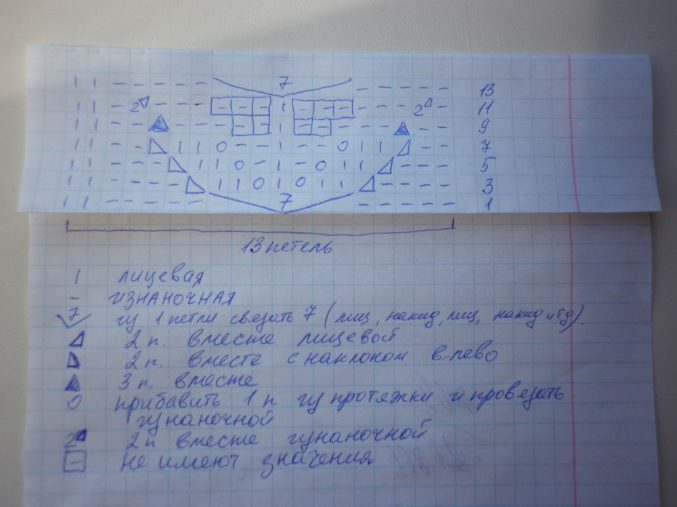 I I - - - - - - 7 - - - - - 13
I I - 2 - - - I - - - 2 - 11
I I - - - - I - - - - 9
I I - - I I O - - I - - O I I - - 7
I I - - - I I O - I - O I I - - - 5
I I - - - - I I O I O I I - - - - 3
I I - - - - - 7 - - - - - 1
13 петель
I лицевая
- изнаночная
7 из 1 петли связать 7 (лиц, накид, лиц, накид итд).
2 п. вместе лицевой
2 п. вместе с наклоном влево
3 п. вместе
O прибавить 1 п из протяжки и провязать
изнаночной
2 2 п вместе изнаночной
- не имеют значения